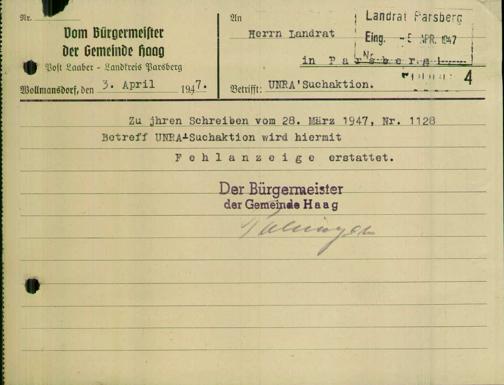 Nr.
Vom Bürgermeister
der Gemeinde Haag
Post Laaber - Landkreis Parsberg
Wollmansdorf, den 3. April 1947.
An
Herrn Landrat
in Parsberg
Landrat Parsberg
Eing. - 5 APR. 1947
Nr.
4
Betrifft: UNRA'Suchaktion.
Zu jhren Schreiben vom 28. März 1947, Nr. 1128
Betreff UNRA-Suchaktion wird hiermit
Fehlanzeige erstattet.
Der Bürgermeister
der Gemeinde Haag